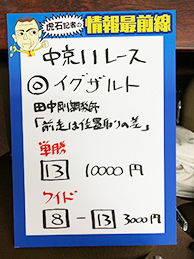 虎石記者の
情報最前線
中京11レース
◎イグザルト
田中剛調教師
「前走は位置取りの差」
単勝
13 10000円
ワイド
8 - 13 3000円